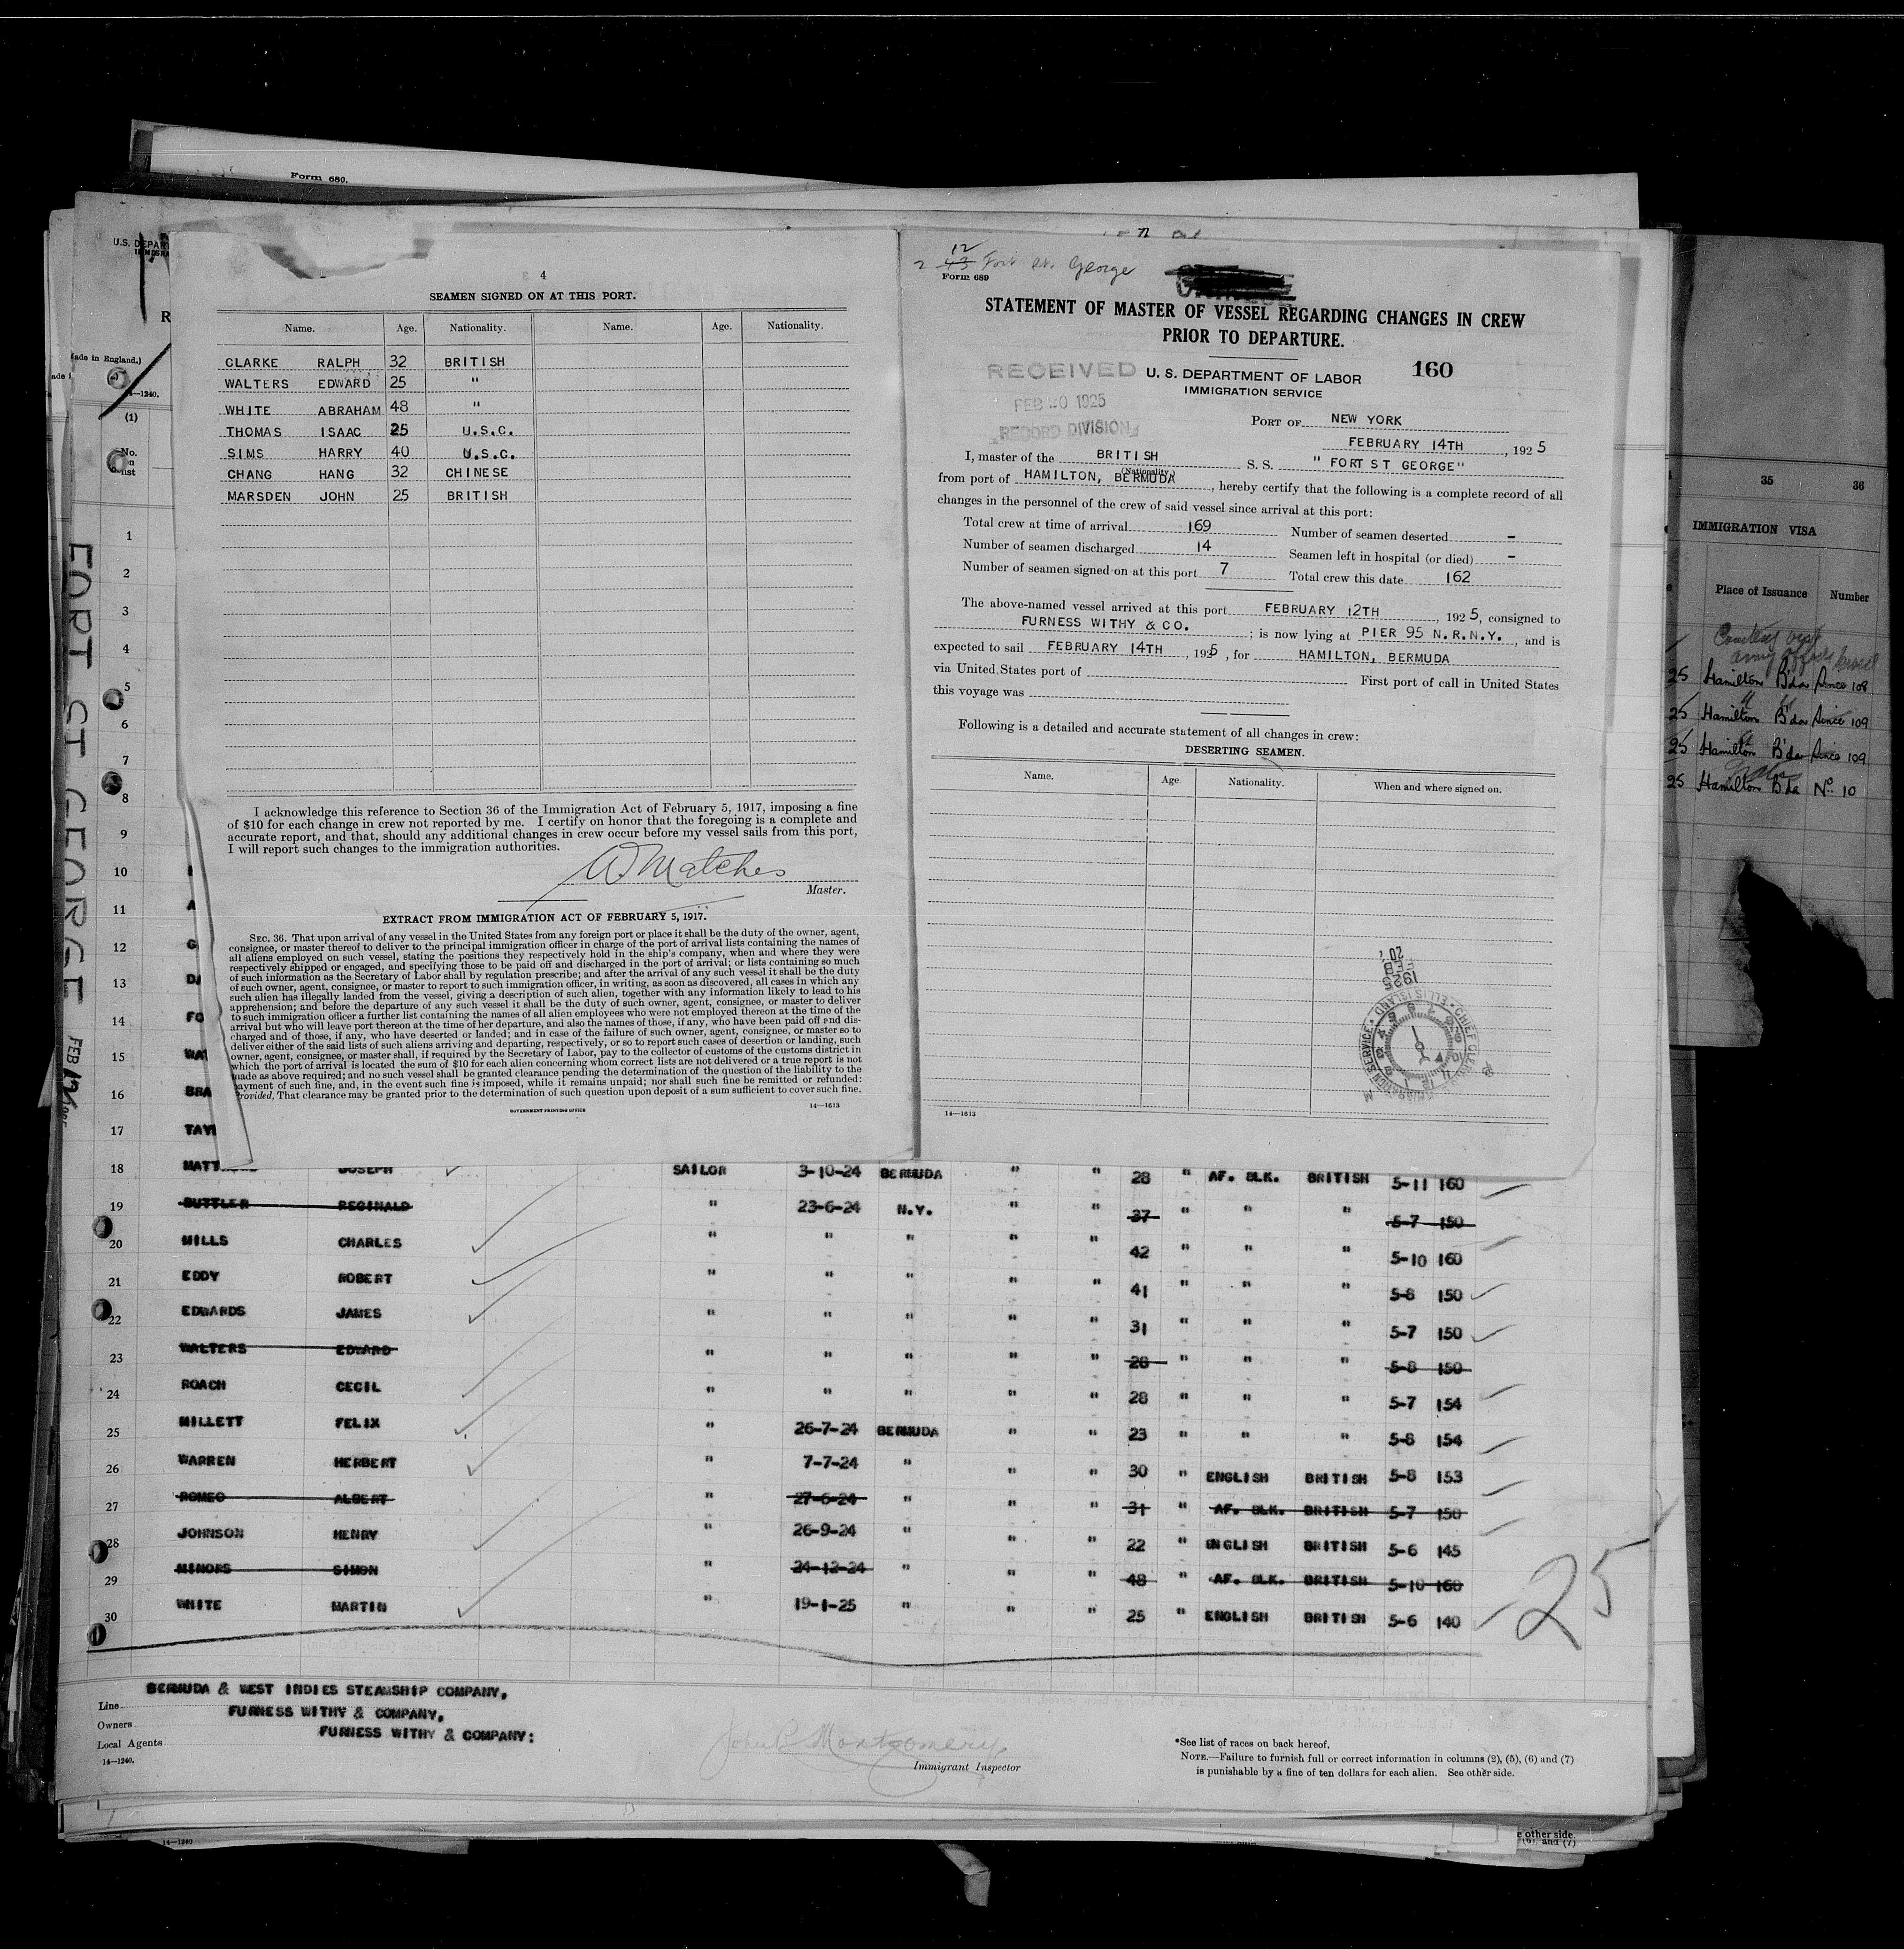 Form 680.
4
SEAMEN SIGNED ON AT THIS PORT.
Name. Age. Nationality. Name. Age. Nationality.
CLARKE RALPH 32 BRITISH
WALTERS EDWARD 25 "
WHITE ABRAHAM 48 "
THOMAS ISAAC 25 U.S.C.
SIMS HARRY 40 U.S.C.
CHANG HANG 32 CHINESE
MARSDEN JOHN 25 BRITISH
I acknowledge this reference to Section 36 of the Immigration Act of February 5, 1917, imposing a fine
of $10 for each change in crew not reported by me. I certify on honor that the foregoing is a complete and
accurate report, and that, should any additional changes in crew occur before my vessel sails from this port,
I will report such changes to the immigration authorities.
W Matches
Master.
EXTRACT FROM IMMIGRATION ACT OF FEBRUARY 5, 1917.
SEC. 36. That upon arrival of any vessel in the United States from any foreign port or place it shall be the duty of the owner, agent,
consignee, or master thereof to deliver to the principal immigration officer in charge of the port of arrival lists containing the names of
all aliens employed on such vessel, stating the positions they respectively hold in the ship's company, when and where they were
respectively shipped or engaged, and specifying those to be paid off and discharged in the port of arrival; or lists containing so much
of such information as the Secretary of Labor shall by regulation prescribe; and after the arrival of any such vessel it shall be the duty
of such owner, agent, consignee, or master to report to such immigration officer, in writing, as soon as discovered, all cases in which any
such alien has illegally landed from the vessel, giving a description of such alien, together with any information likely to lead to his
apprehension; and before the departure of any such vessel it shall be the duty of such owner, agent, consignee, or master to deliver
to such immigration officer a further list containing the names of all alien employees who were not employed thereon at the time of the
arrival but who will leave port thereon at the time of her departure, and also the names of those, if any, who have been paid off and dis-
charged and of those, if any, who have deserted or landed; and in case of the failure of such owner, agent, consignee, or master so to
deliver either of the said lists of such aliens arriving and departing, respectively, or so to report such cases of desertion or landing, such
owner, agent, consignee, or master shall, if required by the Secretary of Labor, pay to the collector of customs of the customs district in
which the port of arrival is located the sum of $10 for each alien concerning whom correct lists are not delivered or a true report is not
made as above required; and no such vessel shall be granted clearance pending the determination of the question of the liability to the
payment of such fine, and, in the event such fine is imposed, while it remains unpaid; nor shall such fine be remitted or refunded:
Provided, That clearance may be granted prior to the determination of such question upon deposit of a sum sufficient to cover such fine.
GOVERNMENT PRINTING OFFICE
14—1613
2 12 43 Fort St. George
Form 689
STATEMENT OF MASTER OF VESSEL REGARDING CHANGES IN CREW
PRIOR TO DEPARTURE.
RECEIVED
FEB 20 1925
RECORD DIVISION
U. S. DEPARTMENT OF LABOR
IMMIGRATION SERVICE
160
PORT OF NEW YORK
FEBRUARY 14TH, 1925
I, master of the BRITISH S. S. " FORT ST GEORGE"
(Nationality)
from port of HAMILTON, BERMUDA, hereby certify that the following is a complete record of all
changes in the personnel of the crew of said vessel since arrival at this port:
Total crew at time of arrival 169 Number of seamen deserted -
Number of seamen discharged 14 Seamen left in hospital (or died) -
Number of seamen signed on at this port 7 Total crew this date 162
The above-named vessel arrived at this port FEBRUARY 12TH, 1925, consigned to
FURNESS WITHY & CO.; is now lying at PIER 95 N.R.N.Y., and is
expected to sail FEBRUARY 14TH, 1925, for HAMILTON, BERMUDA
via United States port of First port of call in United States
this voyage was
Following is a detailed and accurate statement of all changes in crew:
DESERTING SEAMEN.
Name. Age. Nationality. When and where signed on.
1925
FEB
20
IMMIGRATION SERVICE
CHIEF CLERK
ELLIS ISLAND
14—1613
35 36
IMMIGRATION VISA
Place of Issuance Number
25 Hamilton B'da Since 108
25 Hamilton B'da Since 109
25 Hamilton B'da Since 109
25 Hamilton B'da No 10
U.S. DEPAR
Made in England.)
14—1240.
(1)
No.
on
list
FORT ST GEORGE FEB 12
1
2
3
4
5
6
7
8
9
10
11
12
13
14
15
16 BRA
17 TAY
18 MATT JOSEPH SAILOR 3-10-24 BERMUDA " " 28 " AF. BLK. BRITISH 5-11 160
19 BUTTLER REGINALD " 23-6-24 N.Y. " " 37 " " " 5-7 150
20 MILLS CHARLES " " " " " 42 " " " 5-10 160
21 EDDY ROBERT " " " " " 41 " " " 5-8 150
22 EDWARDS JAMES " " " " " 31 " " " 5-7 150
23 WALTERS EDWARD " " " " " 26 " " " 5-8 150
24 ROACH CECIL " " " " " 28 " " " 5-7 154
25 MILLETT FELIX " 26-7-24 BERMUDA " " 23 " " " 5-8 154
26 WARREN HERBERT " 7-7-24 " " " 30 " ENGLISH BRITISH 5-8 153
27 ROMEO ALBERT " 27-6-24 " " " 31 " AF. BLK. BRITISH 5-7 150
28 JOHNSON HENRY " 26-9-24 " " " 22 " ENGLISH BRITISH 5-6 145
29 MINORS SIMON " 24-12-24 " " " 48 " AF. BLK. BRITISH 5-10 160
30 WHITE MARTIN " 19-1-25 " " " 25 " ENGLISH BRITISH 5-6 140
25
Line BERMUDA & WEST INDIES STEAMSHIP COMPANY,
Owners FURNESS WITHY & COMPANY,
Local Agents FURNESS WITHY & COMPANY:
14—1240.
John P. Montgomery
Immigrant Inspector
*See list of races on back hereof.
NOTE.—Failure to furnish full or correct information in columns (2), (5), (6) and (7)
is punishable by a fine of ten dollars for each alien. See other side.
14—1240
e other side.
(6) and (7)